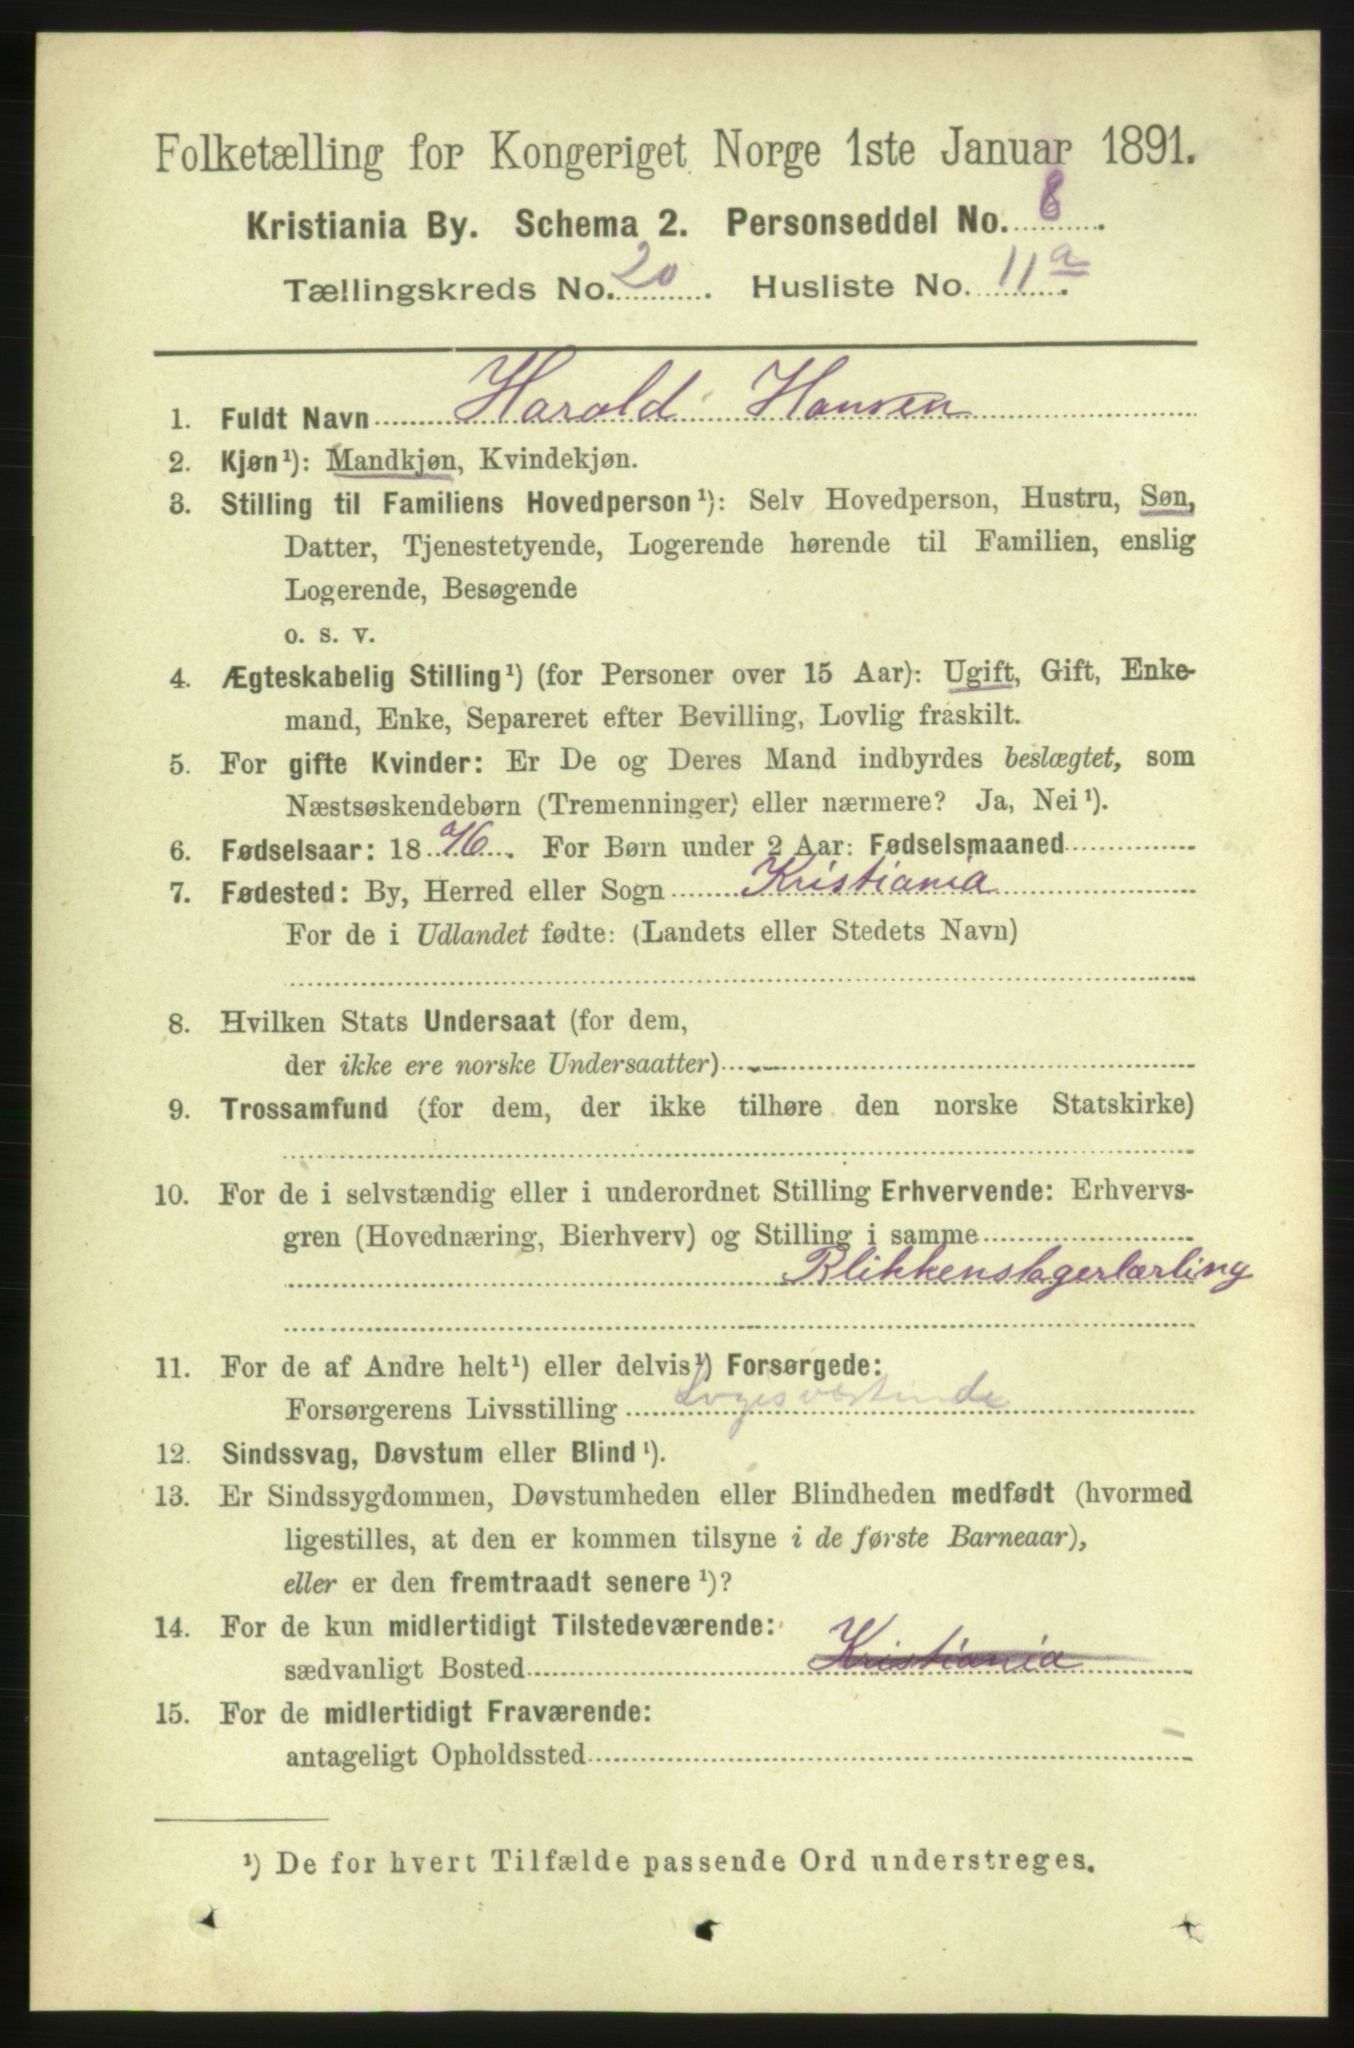 Folketælling for Kongeriget Norge 1ste Januar 1891.
Kristiania By. Schema 2. Personseddel No. 8.
Tællingskreds No. 20. Husliste No. 11a.
1. Fuldt Navn Harald Hansen
2. Kjøn¹): Mandkjøn, Kvindekjøn.
3. Stilling til Familiens Hovedperson¹): Selv Hovedperson, Hustru, Søn,
Datter, Tjenestetyende, Logerende hørende til Familien, enslig
Logerende, Besøgende
o. s. v.
4. Ægteskabelig Stilling¹) (for Personer over 15 Aar): Ugift, Gift, Enke-
mand, Enke, Separeret efter Bevilling, Lovlig fraskilt.
5. For gifte Kvinder: Er De og Deres Mand indbyrdes beslægtet, som
Næstsøskendebørn (Tremenninger) eller nærmere? Ja, Nei¹).
6. Fødselsaar: 1876. For Børn under 2 Aar: Fødselsmaaned
7. Fødested: By, Herred eller Sogn Kristiania
For de i Udlandet fødte: (Landets eller Stedets Navn)
8. Hvilken Stats Undersaat (for dem,
der ikke ere norske Undersaatter)
9. Trossamfund (for dem, der ikke tilhøre den norske Statskirke)
10. For de i selvstændig eller i underordnet Stilling Erhvervende: Erhvervs-
gren (Hovednæring, Bierhverv) og Stilling i samme
Blikkenslagerlærling
11. For de af Andre helt¹) eller delvis¹) Forsørgede:
Forsørgerens Livsstilling Logisværtinde
12. Sindssvag, Døvstum eller Blind¹).
13. Er Sindssygdommen, Døvstumheden eller Blindheden medfødt (hvormed
ligestilles, at den er kommen tilsyne i de første Barneaar),
eller er den fremtraadt senere¹)?
14. For de kun midlertidigt Tilstedeværende:
sædvanligt Bosted Kristiania
15. For de midlertidigt Fraværende:
antageligt Opholdssted
¹) De for hvert Tilfælde passende Ord understreges.